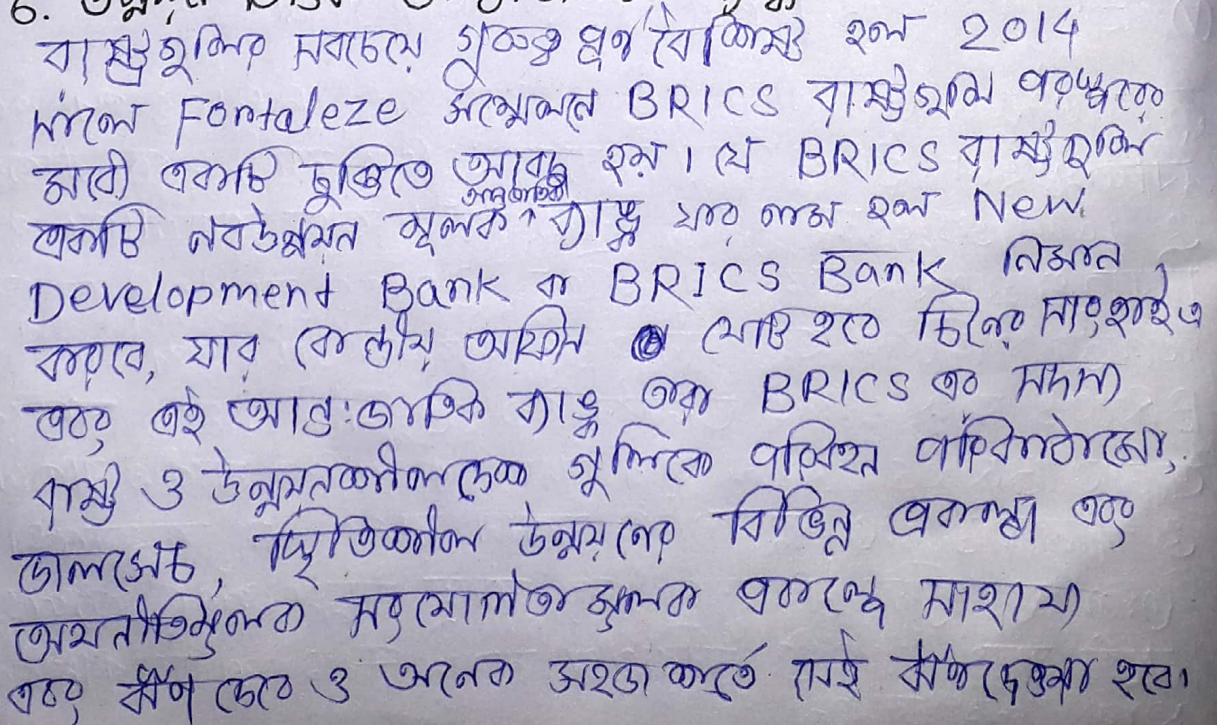 রাষ্ট্রগুলির সবচেয়ে গুরুত্বপূর্ণ বৈশিষ্ট হল 2014
সালে Fontaleze সম্মেলনে BRICS রাষ্ট্রগুলি পরস্পরের
মধ্যে একটি চুক্তিতে আবদ্ধ হয়। যে BRICS রাষ্ট্রগুলি
একটি নবউন্নয়ন মূলক ব্যাঙ্ক যার নাম হল New
Development Bank বা BRICS Bank নির্মান
করবে, যার কেন্দ্রীয় অফিস যেটি হবে চিনের সাংহাইএ
এবং এই আন্ত:জাতিক ব্যাঙ্ক তারা BRICS এর সদস্য
রাষ্ট্র ও উন্নয়নশীলদেশ গুলিকে পরিবহন পরিকাঠামো,
জলসেচ, স্থিতিশীল উন্নয়ণের বিভিন্ন প্রকল্প এবং
অথনীতিমূলক সহযোগিতামূলক প্রকল্পে সাহায্য
এবং ঋণ দেবে ও অনেক সহজ শর্তে সেই ঋণ দেওয়া হবে।